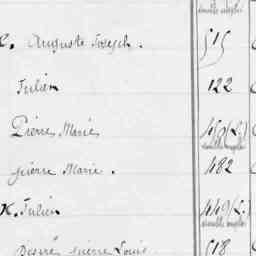 Auguste Joseph. 515
Julien 122
Pierre Marie
pierre Marie. 482
K. Julien 449 (L.)
Desiré pierre Louis 518